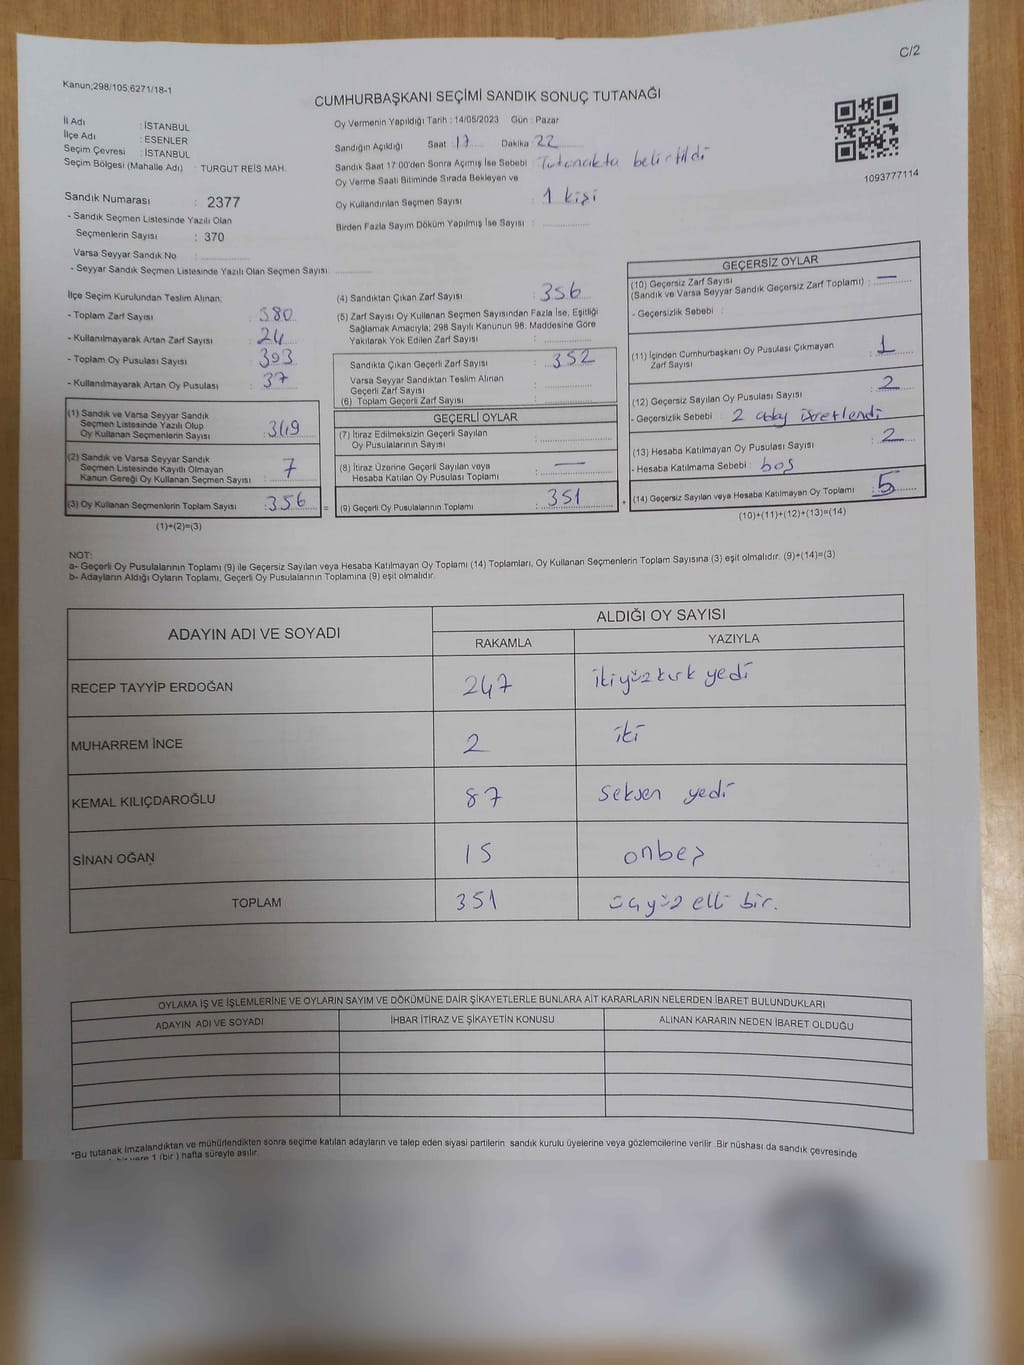 C/2
Kanun;298/105;6271/18-1
CUMHURBAŞKANI SEÇİMİ SANDIK SONUÇ TUTANAĞI
İl Adı : İSTANBUL
İlçe Adı : ESENLER
Seçim Çevresi : İSTANBUL
Seçim Bölgesi (Mahalle Adı) : TURGUT REİS MAH.
Sandık Numarası : 2377
- Sandık Seçmen Listesinde Yazılı Olan
Seçmenlerin Sayısı : 370
Varsa Seyyar Sandık No
- Seyyar Sandık Seçmen Listesinde Yazılı Olan Seçmen Sayısı
Oy Vermenin Yapıldığı Tarih : 14/05/2023 Gün : Pazar
Sandığın Açıldığı Saat 17 Dakika 22
Sandık Saat 17:00'den Sonra Açımış İse Sebebi : Tutanakta belirtildi
Oy Verme Saati Bitiminde Sırada Bekleyen ve
Oy Kullandırılan Seçmen Sayısı : 1 kişi
Birden Fazla Sayım Döküm Yapılmış İse Sayısı :
1093777114
İlçe Seçim Kurulundan Teslim Alınan;
- Toplam Zarf Sayısı : 380
- Kullanılmayarak Artan Zarf Sayısı : 24
- Toplam Oy Pusulası Sayısı : 393
- Kullanılmayarak Artan Oy Pusulası : 37
(1) Sandık ve Varsa Seyyar Sandık
Seçmen Listesinde Yazılı Olup
Oy Kullanan Seçmenlerin Sayısı : 349
(2) Sandık ve Varsa Seyyar Sandık
Seçmen Listesinde Kayıtlı Olmayan
Kanun Gereği Oy Kullanan Seçmen Sayısı : 7
(3) Oy Kullanan Seçmenlerin Toplam Sayısı : 356 =
(1)+(2)=(3)
(4) Sandıktan Çıkan Zarf Sayısı : 356
(5) Zarf Sayısı Oy Kullanan Seçmen Sayısından Fazla İse, Eşitliği
Sağlamak Amacıyla; 298 Sayılı Kanunun 98. Maddesine Göre
Yakılarak Yok Edilen Zarf Sayısı :
Sandıkta Çıkan Geçerli Zarf Sayısı : 352
Varsa Seyyar Sandıktan Teslim Alınan
Geçerli Zarf Sayısı :
(6) Toplam Geçerli Zarf Sayısı :
GEÇERLİ OYLAR
(7) İtiraz Edilmeksizin Geçerli Sayılan
Oy Pusulalarının Sayısı :
(8) İtiraz Üzerine Geçerli Sayılan veya
Hesaba Katılan Oy Pusulası Toplamı : —
(9) Geçerli Oy Pusulalarının Toplamı : 351 +
GEÇERSİZ OYLAR
(10) Geçersiz Zarf Sayısı
(Sandık ve Varsa Seyyar Sandık Geçersiz Zarf Toplamı) : —
- Geçersizlik Sebebi :
(11) İçinden Cumhurbaşkanı Oy Pusulası Çıkmayan
Zarf Sayısı : 1
(12) Geçersiz Sayılan Oy Pusulası Sayısı : 2
- Geçersizlik Sebebi : 2 aday işaretlendi
(13) Hesaba Katılmayan Oy Pusulası Sayısı : 2
- Hesaba Katılmama Sebebi : boş
(14) Geçersiz Sayılan veya Hesaba Katılmayan Oy Toplamı : 5
(10)+(11)+(12)+(13)=(14)
NOT:
a- Geçerli Oy Pusulalarının Toplamı (9) ile Geçersiz Sayılan veya Hesaba Katılmayan Oy Toplamı (14) Toplamları, Oy Kullanan Seçmenlerin Toplam Sayısına (3) eşit olmalıdır. (9)+(14)=(3)
b- Adayların Aldığı Oyların Toplamı, Geçerli Oy Pusulalarının Toplamına (9) eşit olmalıdır.
ADAYIN ADI VE SOYADI ALDIĞI OY SAYISI
RAKAMLA YAZIYLA
RECEP TAYYİP ERDOĞAN 247 ikiyüzkırk yedi
MUHARREM İNCE 2 iki
KEMAL KILIÇDAROĞLU 87 seksen yedi
SİNAN OĞAN 15 onbeş
TOPLAM 351 üçyüz elli bir.
OYLAMA İŞ VE İŞLEMLERİNE VE OYLARIN SAYIM VE DÖKÜMÜNE DAİR ŞİKAYETLERLE BUNLARA AİT KARARLARIN NELERDEN İBARET BULUNDUKLARI
ADAYIN ADI VE SOYADI İHBAR İTİRAZ VE ŞİKAYETİN KONUSU ALINAN KARARIN NEDEN İBARET OLDUĞU
*Bu tutanak imzalandıktan ve mühürlendikten sonra seçime katılan adayların ve talep eden siyasi partilerin sandık kurulu üyelerine veya gözlemcilerine verilir. Bir nüshası da sandık çevresinde
1 (bir) hafta süreyle asılır.